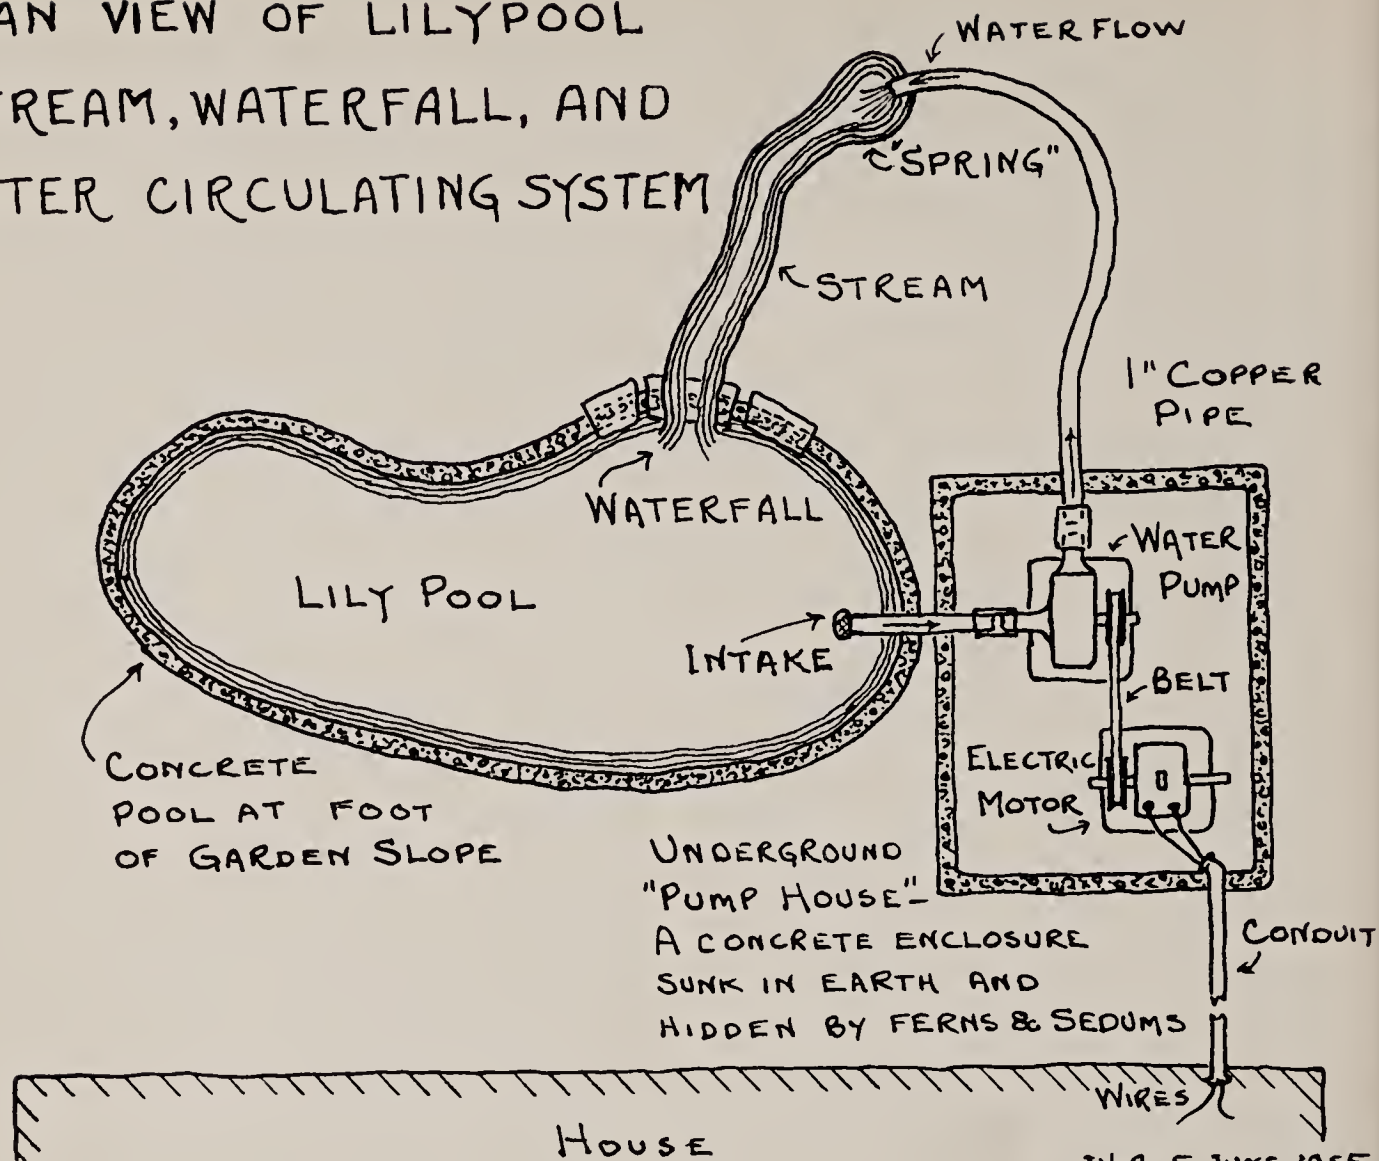 AN VIEW OF LILYPOOL
TREAM, WATERFALL, AND
TER CIRCULATING SYSTEM
WATER FLOW
"SPRING"
STREAM
1" COPPER
PIPE
WATERFALL
WATER
PUMP
LILY POOL
INTAKE
BELT
ELECTRIC
MOTOR
CONCRETE
POOL AT FOOT
OF GARDEN SLOPE
UNDERGROUND
"PUMP HOUSE"-
A CONCRETE ENCLOSURE
SUNK IN EARTH AND
HIDDEN BY FERNS & SEDUMS
CONDUIT
WIRES
HOUSE
JUNE 1955